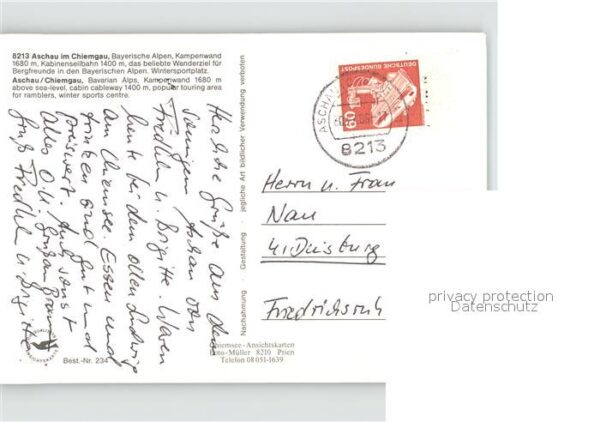 8213 Aschau im Chiemgau, Bayerische Alpen, Kampenwand
1680 m, Kabinenseilbahn 1400 m, das beliebte Wanderziel für
Bergfreunde in den Bayerischen Alpen. Wintersportplatz.
Aschau/Chiemgau, Bavarian Alps, Kampenwand 1680 m
above sea-level, cabin cableway 1400 m, popular touring area
for ramblers, winter sports centre.
Herzliche Grüße aus dem
sonnigen Aschau von
Friedhelm u. Brigitte. Waren
heute bei dem ollen Ludwig
am Chiemsee. Essen und
trinken sind gut und
preiswert. Auch sonst
alles o.k.
Gruß Friedhelm u. Brigitte
Nachahmung · Gestaltung · jegliche Art bildlicher Verwendung verboten
DEUTSCHE BUNDESPOST
60
ASCHAU
8213
Herrn u. Frau
Nau
41 Duisburg
Friedrichsruh
privacy protection
Datenschutz
Best.-Nr. 234
Chiemsee-Ansichtskarten
Foto-Müller 8210 Prien
Telefon 08051-1639